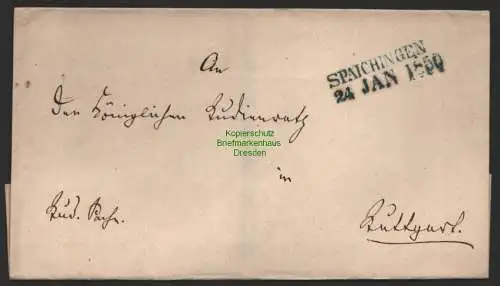 An
SPAICHINGEN
24 JAN 1850
Den Königlichen Studienrath
Kopierschutz
Briefmarkenhaus
Dresden
in
Stud. Sache.
Stuttgart.